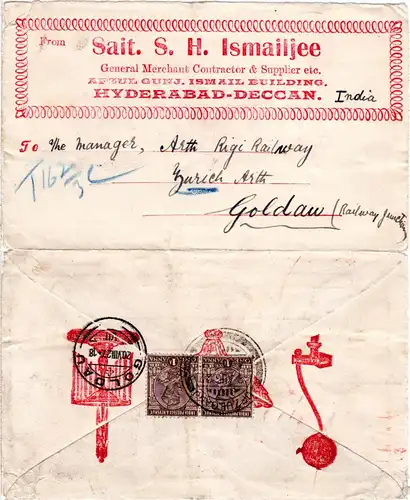 From
Sait. S. H. Ismailjee
General Merchant Contractor & Supplier etc.
AFZUL GUNJ, ISMAIL BUILDING.
HYDERABAD-DECCAN.
India
To The Manager, Arth Rigi Railway
T162/3 c
Zurich Arth
Goldau (Railway Junction
GOLDAU